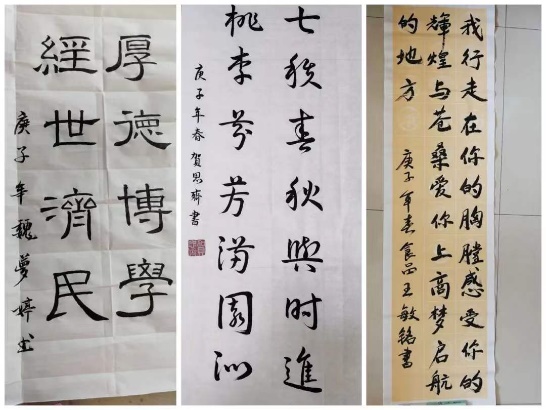 厚德博學
經世濟民
庚子年魏夢婷书
七秩春秋與時進
桃李芬芳满園沁
庚子年春賀思齊書
我行走在你的胸膛感受你的
輝煌与苍桑爱你上高梦启航
的地方 庚子年春食品王敏铭書